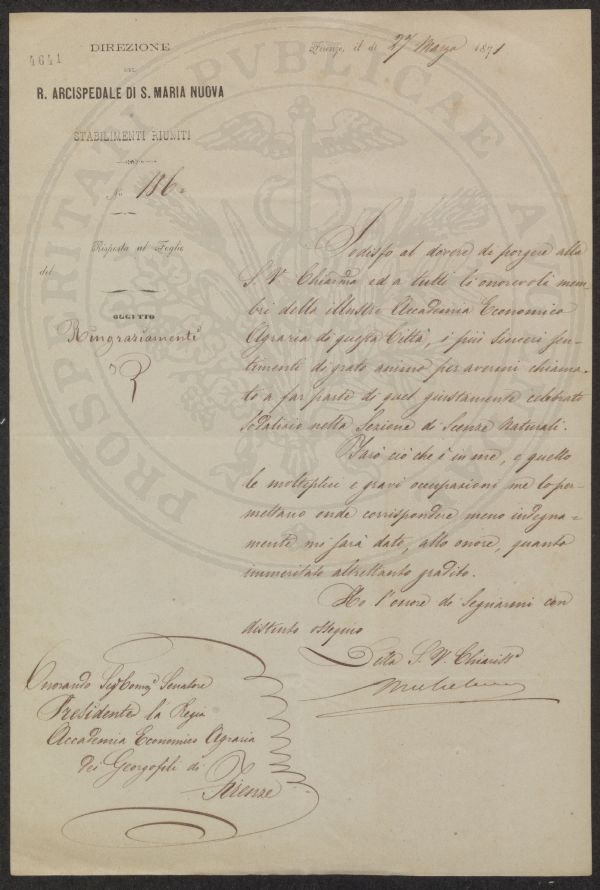 4641
DIREZIONE
DEL
R. ARCISPEDALE DI S. MARIA NUOVA
STABILIMENTI RIUNITI
No 186
Risposta al Foglio
del
OGGETTO
Ringraziamenti
Firenze, il dì 27 Marzo 1871
Sodisfo al dovere di porgere alla
S. V. Chiarma ed a tutti li onorevoli mem-
bri della illustre Accademia Economico
Agraria di questa Città, i più sinceri sen-
timenti di grato animo per avermi chiama-
to a far parte di quel giustamente celebrato
Sodalizio nella Sezione di Scienze Naturali.
Farò ciò che è in me, e quello
le molteplici e gravi occupazioni me lo per-
mettano onde corrispondere meno indegna-
mente mi sarà dato, allo onore, quanto
immeritato altrettanto gradito.
Ho l'onore di segnarmi con
distinto ossequio
Della S. V. Chiariss.a
Onorando Sig. Comm.e Senatore
Presidente la Regia
Accademia Economico Agraria
dei Georgofili di
Firenze
PROSPERITATI PVBLICAE